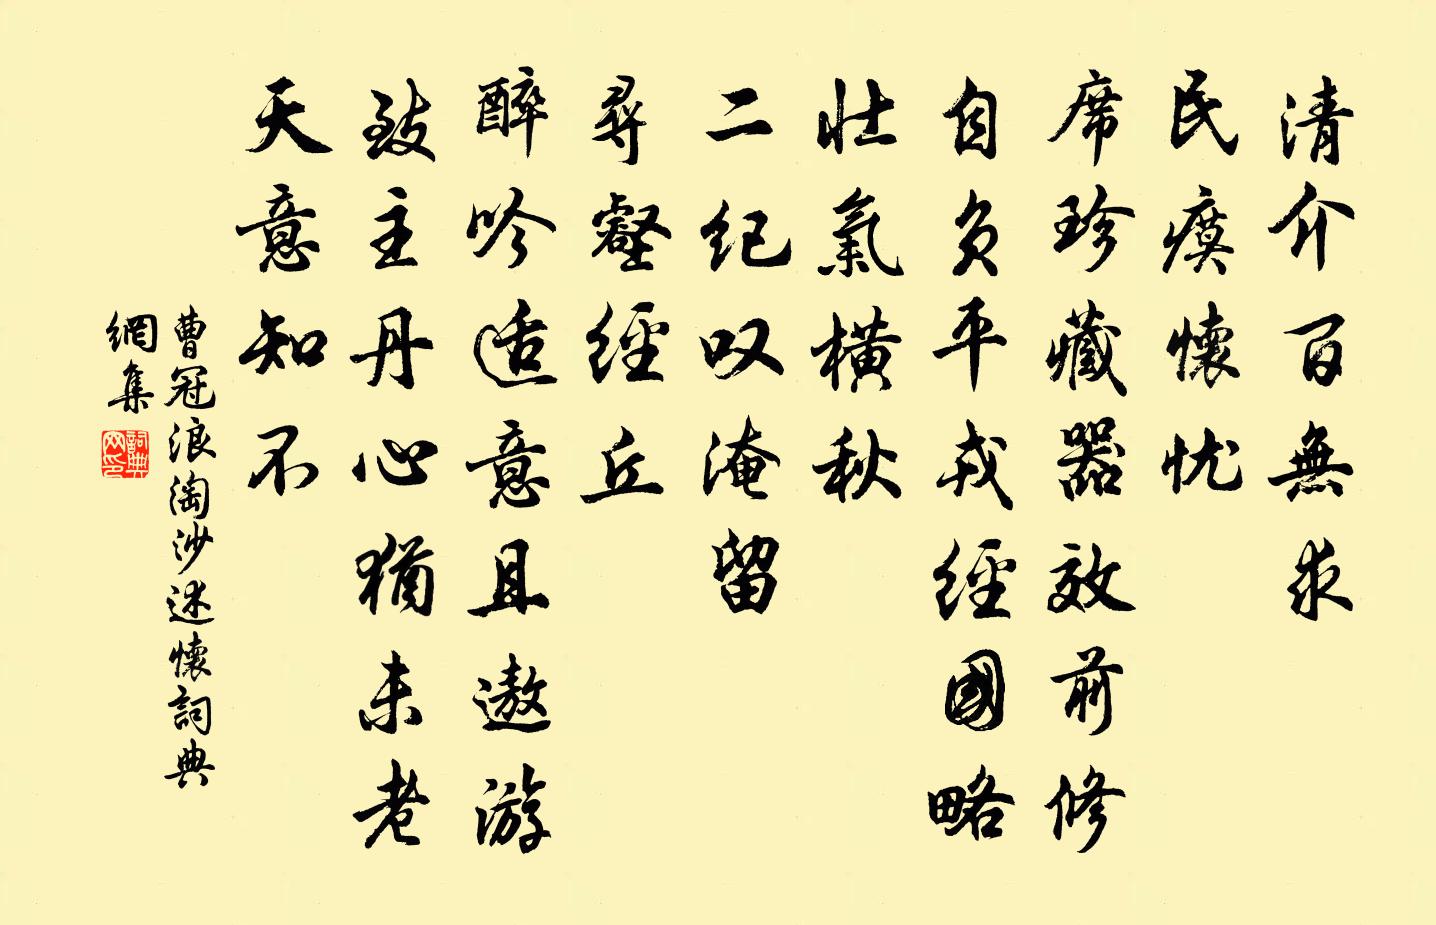 清介百無求
民瘼懷忧
席珍藏器效前修
自负平戎經國略
壮氣橫秋
二纪叹淹留
尋壑經丘
醉吟适意且遨游
致主丹心猶未老
天意知不
曹冠浪淘沙述懷詞典
網集
詞典网印